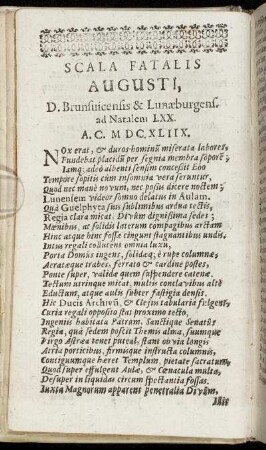 SCALA FATALIS
AUGUSTI,
D. Brunsuicensis & Lunæburgens.
ad Natalem LXX.
A. C. M DC. XLIIX.
NOx erat, & duros hominũ miserata labores,
Fundebat placidũ per segnia membra soporẽ;
Iamq; adeò abeunti sensim concessit Eoo
Tempore sopitis cùm insomnia vera feruntur,
Quod nec manè novum, nec posùs dicere noctem;
Lunensem videor somno delatus in Aulam.
Quà Guelphyta suis sublimibus ardua tectis,
Regia clara micat, Divûm dignissima sedes;
Mœnibus, ac solidis laterum compagibus arctam
Hinc atque hinc fossæ cingunt stagnantibus undis.
Intus regali collucens omnia luxu,
Porta Domûs ingens, solidaq; è rupe columnæ;
Aerataque trabes, ferrato & cardine postes,
Ponte super, validæ quem suspendere catenæ.
Tectum utrinque micat, multis conclavibus altè
Eductum, atque aulæ subter fastigia densis.
Hîc Ducis Archivũ, & Elysiis tabularia fulgent,
Curia regali opposita stat proximo tecto,
Ingeniis habitata Patrum, Sanctique Senatûs
Regia, quâ sedem poscit Themis alma, suumque
Virgo Astræa tenet puteal, stant ob via longis
Atria porticibus, firmisque instructa columnis,
Contiguumque hæret Templum, pietate sacratum,
Quod super effulgent Aulæ, & Cœnacula multa,
Desuper in liquidas circum spectantia fossas.
Iuxtà Magnorum apparent penetralia Divûm,